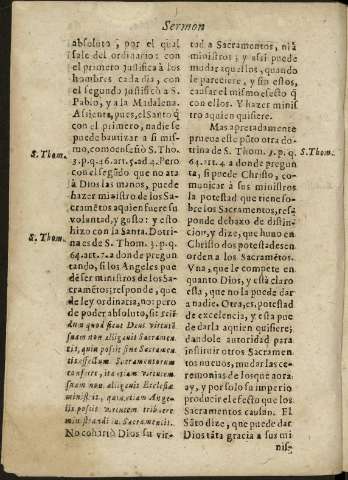 Sermon
absoluto, por el qual
sale del ordinario: con
el primero justifica à los
hombres cada dia, con
el segundo justificò à S.
Pablo, y a la Madalena.
Assienta, pues, el Santo q̃
con el primero, nadie se
puede bautizar a si mis-
mo, como enseñò S. Tho.
S. Thom.
3. p. q. 66. art. 5. ad. 4. Pero
con el segũdo que no ata
à Dios las manos, puede
hazer ministro de los Sa-
cramẽtos a quien fuere su
voluntad, y gusto: y esto
hizo con la Santa. Dotri-
S. Thom.
na es de S. Thom. 3. p. q.
64. art. 7. a donde pregun
tando, si los Angeles pue
dẽ ser ministros de los Sa-
cramẽtos; responde, que
de ley ordinaria, no: pero
de poder absoluto, si:
dum quod sicut Deus virtutẽ
suam non alligavit Sacramen
tis, quin possit sine Sacramen
tis effectum Sacramentorum
conferre, ita etiam virtutem
suam non alligavit Ecclesiæ
ministris, quin etiam Ange-
lis possit virtutem tribuere
ministrandi in Sacramentis.
No cohartò Dios su vir-
tud a Sacramentos, ni à
ministros; y assi puede
mudar aquellos, quando
le pareciere, y sin estos,
causar el mismo efecto q̃
con ellos. Y hazer minis
tro a quien quisiere.
Mas apretadamente
prueva este pũto otra do
trina de S. Thom. 3. p. q.
S. Thom.
64. art. 4. a donde pregun
ta, si puede Christo, co-
municar à sus ministros
la potestad que tiene so-
bre los Sacramentos, res
ponde debaxo de distin-
cion, y dize, que huvo en
Christo dos potestades en
orden a los Sacramẽtos.
Vna, que le compete en
quanto Dios, y està claro
esta, que no la puede dar
a nadie. Otra, es, potestad
de excelencia, y esta pue
de darla a quien quisiere;
dandole autoridad para
instituir otros Sacramen
tos nuevos, mudar las ce-
remonias de los que aora
ay, y por solo su imperio
producir el efecto que los
Sacramentos causan. El
Sãto dize, que puede dar
Dios tãta gracia a sus mi
nis-